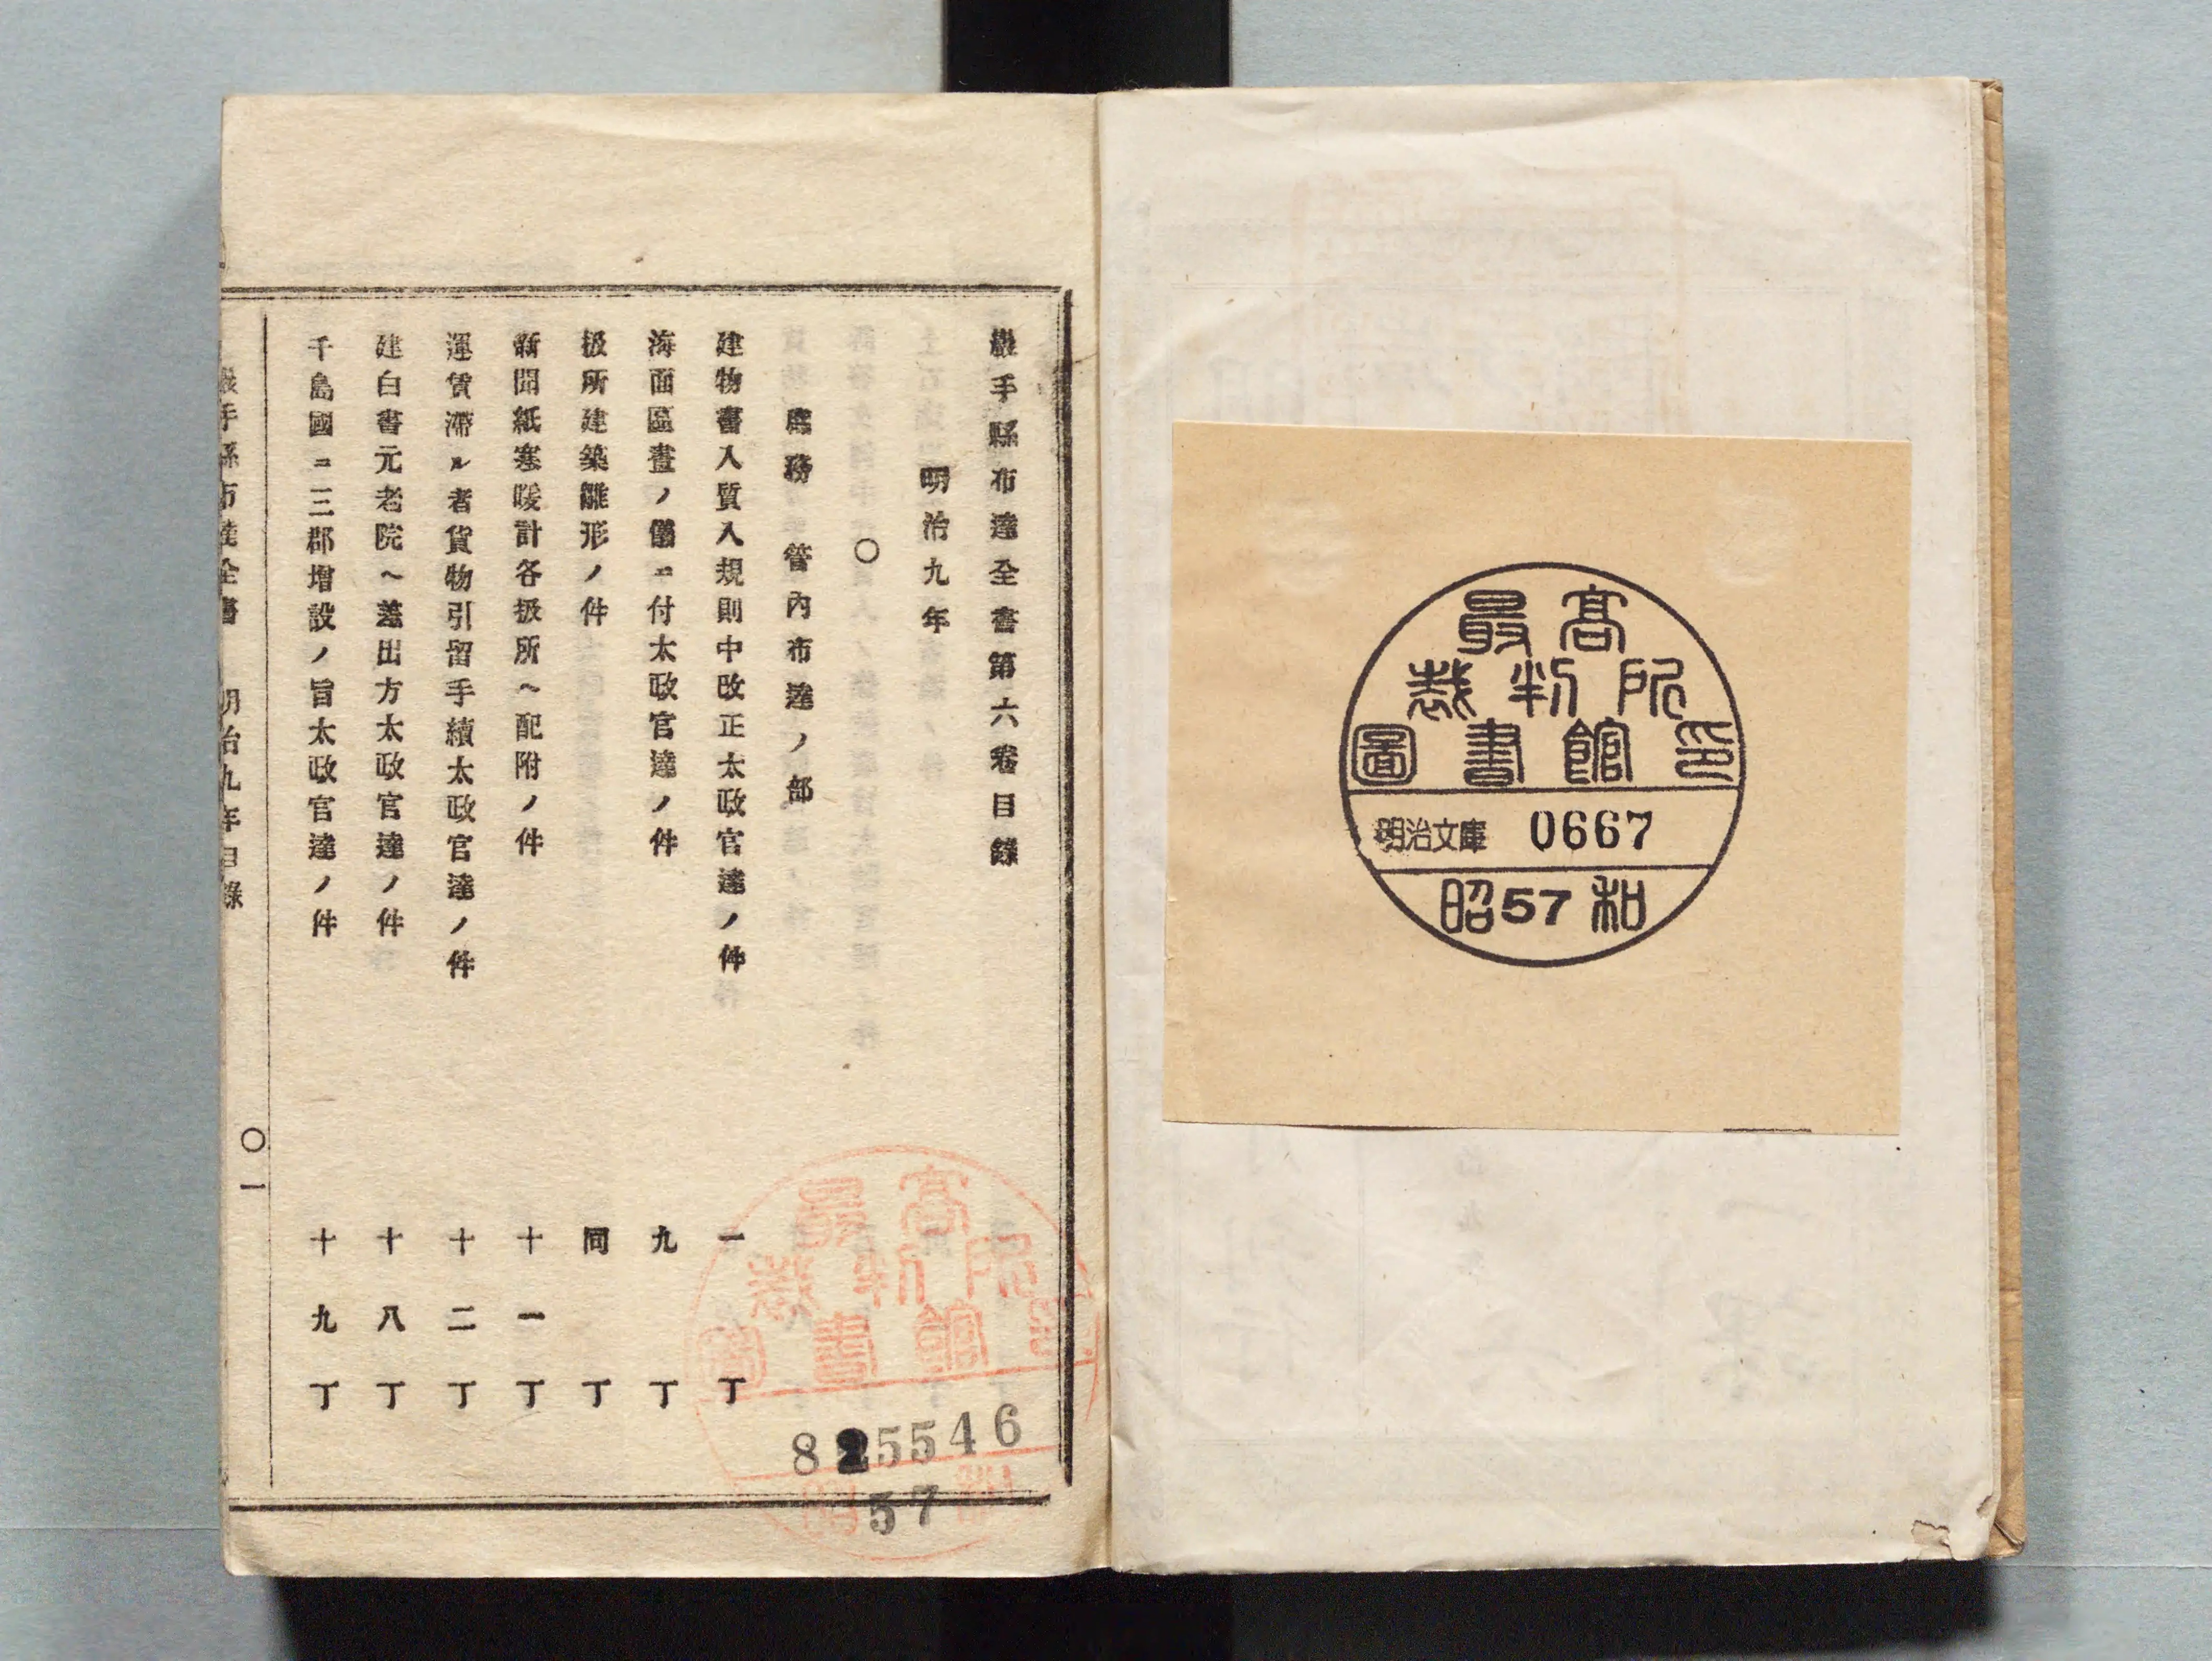 最高
裁判所
圖書館印
明治文庫 0667
昭57和
巖手縣布達全書第六卷目錄
明治九年
○
庶務 管內布達ノ部
建物書入質入規則中改正太政官達ノ件 一丁
海面區畫ノ儀ニ付太政官達ノ件 九丁
扱所建築雛形ノ件 同丁
新聞紙寒暖計各扱所ヘ配附ノ件 十一丁
運賃滯ル者貨物引留手續太政官達ノ件 十二丁
建白書元老院ヘ差出方太政官達ノ件 十八丁
千島國ニ三郡增設ノ旨太政官達ノ件 十九丁
巖手縣布達全書 明治九年目錄 ○一
最高
裁判所
圖書館印
825546
昭57和